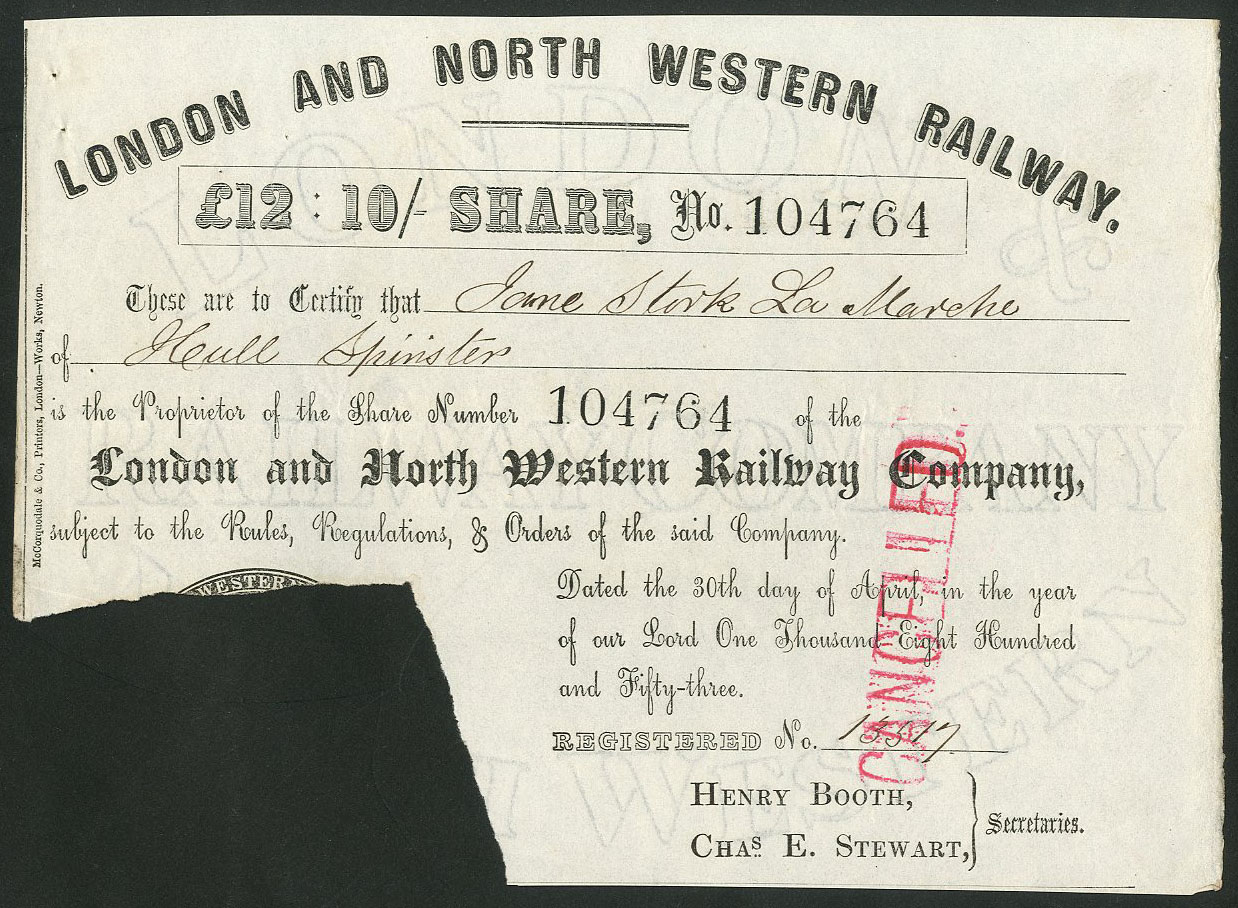 LONDON AND NORTH WESTERN RAILWAY.
£12 : 10/- SHARE, No. 104764
These are to Certify that Jane Stork La Marche
of Hull Spinster
is the Proprietor of the Share Number 104764 of the
London and North Western Railway Company,
subject to the Rules, Regulations, & Orders of the said Company.
WESTERN
Dated the 30th day of April, in the year
of our Lord One Thousand Eight Hundred
and Fifty-three.
REGISTERED No. 13517
HENRY BOOTH,
CHAS. E. STEWART,
Secretaries.
CANCELLED.
McCorquodale & Co., Printers, London—Works, Newton.